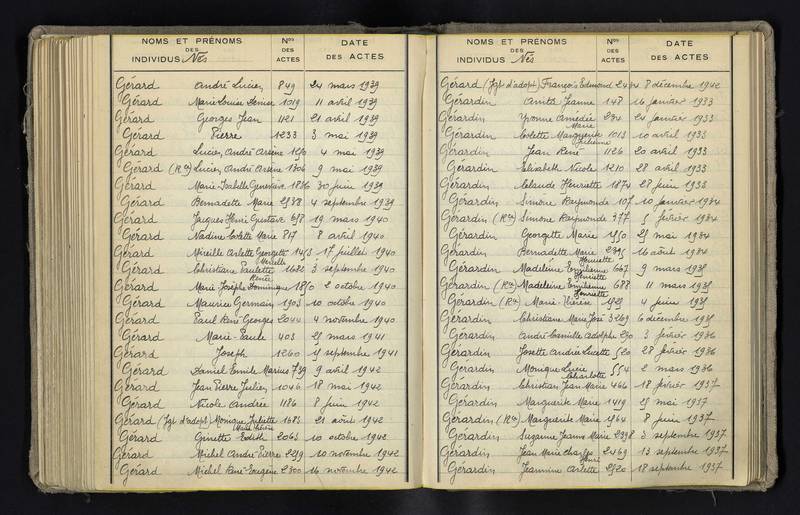 NOMS ET PRÉNOMS
DES
INDIVIDUS Nés
Nos
DES
ACTES
DATE
DES ACTES
Gérard André Lucien 849 24 mars 1939
Gérard Marie Louise Denise 1019 11 avril 1939
Gérard Georges Jean 1121 21 avril 1939
Gérard Pierre 1233 3 mai 1939
Gérard Lucien André Arsène 4 mai 1939
Gérard (Rce) Lucien André Arsène 1306 9 mai 1939
Gérard Marie Isabelle Geneviève 30 juin 1939
Gérard Bernadette Marie 4 septembre 1939
Gérard Jacques Henri Gustave 19 mars 1940
Gérard Nadine Colette Marie 817 8 avril 1940
Gérard Mireille Arlette Georgette 17 juillet 1940
Gérard Christiane Paulette Mireille 3 septembre 1940
Gérard Marie Josèphe Dominique Renée 2 octobre 1940
Gérard Maurice Germain 1903 10 octobre 1940
Gérard Paul René Georges 2044 4 novembre 1940
Gérard Marie-Paule 403 mars 1941
Gérard Joseph 1260 septembre 1941
Gérard Daniel Emile Marius 9 avril 1942
Gérard Jean Pierre Julien 1046 18 mai 1942
Gérard Nicole Andrée 1186 8 juin 1942
Gérard (Jgt d'adopt) Monique Juliette 1683 21 août 1942
Gérard Ginette Edith 2063 10 octobre 1942
Gérard Michel André Pierre 10 novembre 1942
Gérard Michel René Eugène 2300 16 novembre 1942
NOMS ET PRÉNOMS
DES
INDIVIDUS Nés
Nos
DES
ACTES
DATE
DES ACTES
Gérard (Jgt d'adopt) François Edmond 8 décembre 1942
Gérardin Anita Jeanne 148 16 janvier 1933
Gérardin Yvonne Amédée Marie 234 24 janvier 1933
Gérardin Colette Marguerite Julienne 1013 10 avril 1933
Gérardin Jean René 1126 20 avril 1933
Gérardin Elisabeth Nicole 1210 28 avril 1933
Gérardin Claude Henriette 1874 28 juin 1933
Gérardin Simone Raymonde 107 10 janvier 1934
Gérardin (Rce) Simone Raymonde 377 5 février 1934
Gérardin Georgette Marie mai 1934
Gérardin Bernadette Marie 16 août 1934
Gérardin Madeleine Emilienne Henriette 667 9 mars 1935
Gérardin (Rce) Madeleine Emilienne Henriette 688 11 mars 1935
Gérardin (Rce) Marie-Thérèse 4 juin 1935
Gérardin Christiane Marie José 3269 6 décembre 1935
Gérardin André Camille Adolphe 3 février 1936
Gérardin Josette Andrée Lucette 520 28 février 1936
Gérardin Monique Lucie Charlotte 554 2 mars 1936
Gérardin Christian Jean Marie 466 18 février 1937
Gérardin Marguerite Marie 1419 mai 1937
Gérardin (Rce) Marguerite Marie 1564 8 juin 1937
Gérardin Suzanne Jeanne Marie 2398 3 septembre 1937
Gérardin Jean Marie Charles Henri 2469 13 septembre 1937
Gérardin Jeannine Arlette 2520 18 septembre 1937